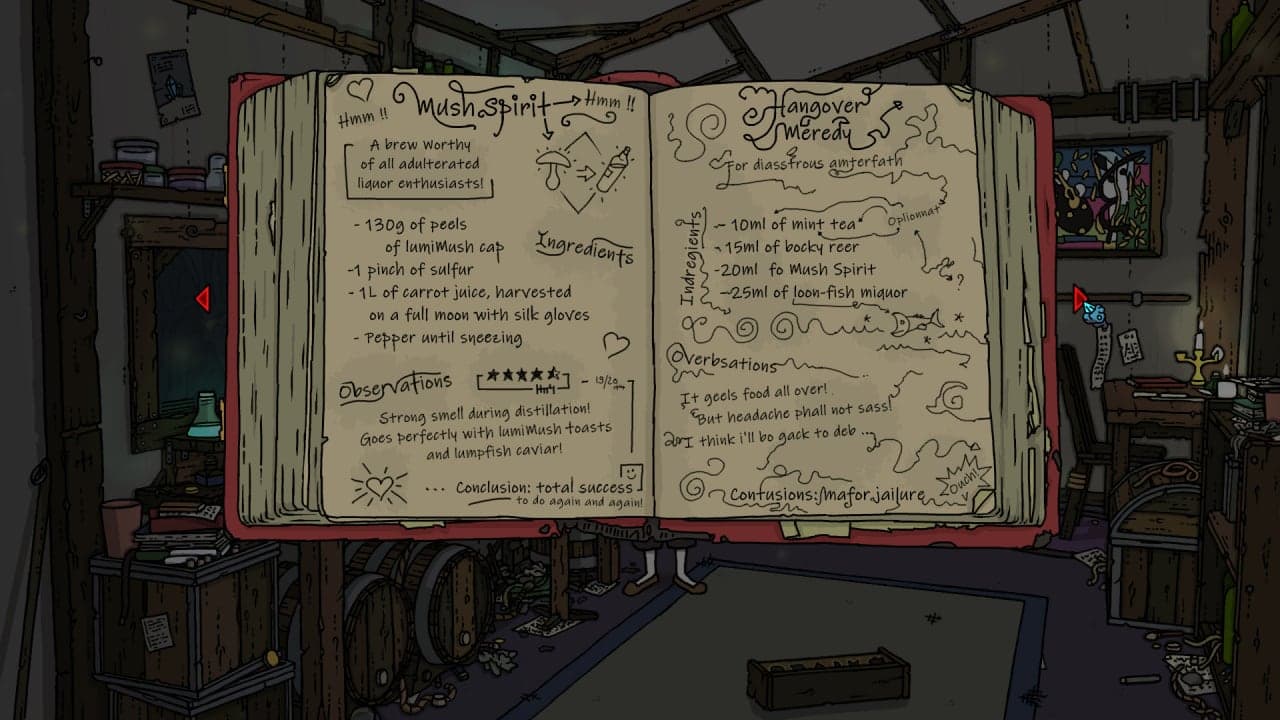 Hmm !!
Mush Spirit
Hmm !!
A brew worthy
of all adulterated
liquor enthusiasts!
- 130g of peels
of lumiMush cap
Ingredients
-1 pinch of sulfur
- 1L of carrot juice, harvested
on a full moon with silk gloves
- Pepper until sneezing
Observations
19/20
Strong smell during distillation!
Goes perfectly with lumiMush toasts
and lumpfish caviar!
... Conclusion: total success
to do again and again!
Hangover
Meredy
For diasstrous amterfath
Indregients
- 10ml of mint tea
Oplionnat
- 15ml of bocky reer
-20ml fo Mush Spirit
-25ml of loon-fish miquor
?
Overbsations
It geels food all over!
But headache phall not sass!
I think i'll bo gack to deb ...
Contusions: mafor jailure
Ouch!